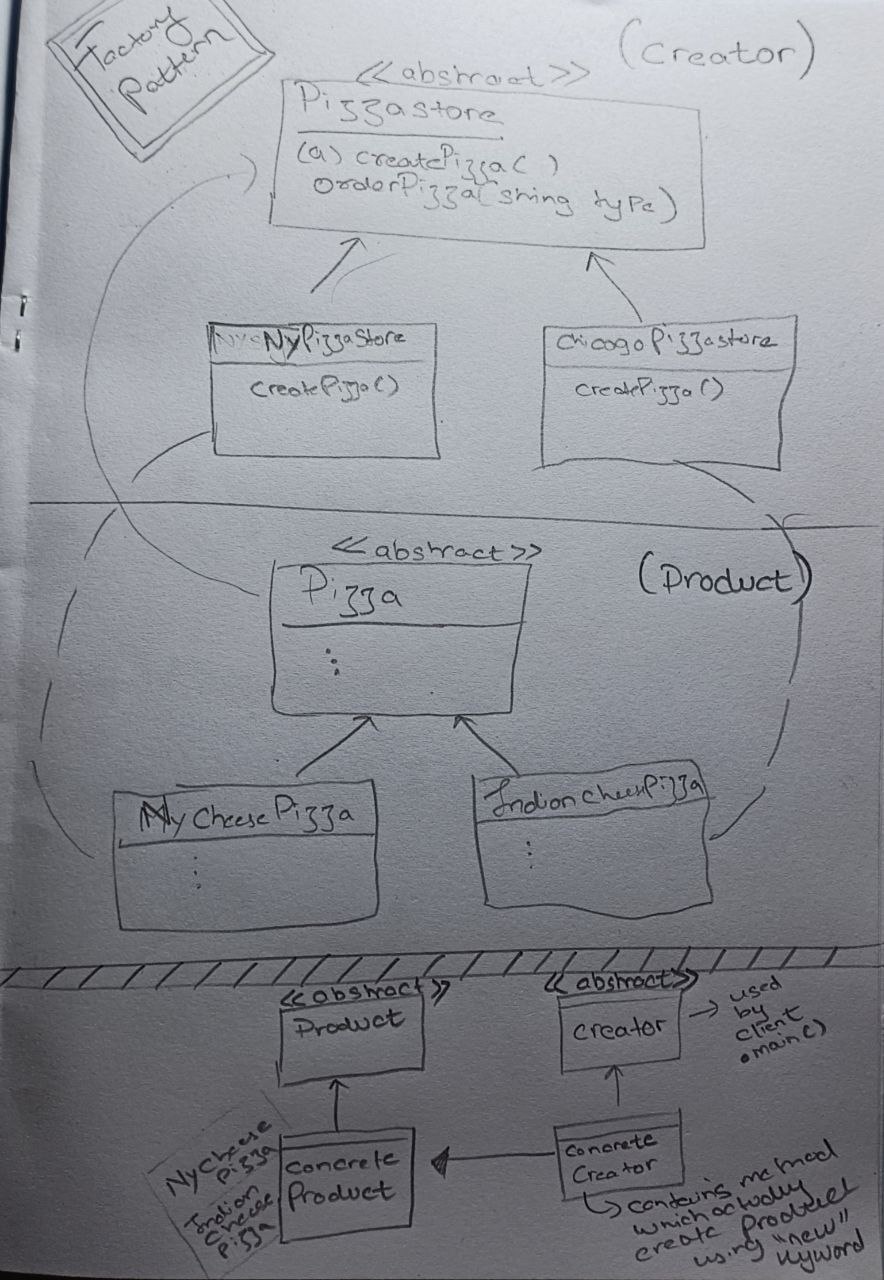 Factory
Pattern
(Creator)
<<abstract>>
Pizzastore
(a) createPizza( )
orderPizza(string type)
NyPizzaStore
createPizza()
chicagoPizzastore
createPizza()
<<abstract>>
(Product)
Pizza
NyCheesePizza
IndianCheesePizza
<<abstract>>
Product
<<abstract>>
Creator
→ used
by
client
main()
NyCheese
Pizza
Indian
Cheese
Pizza
Concrete
Product
Concrete
Creator
contains method
which actually
create product
using "new"
kyword